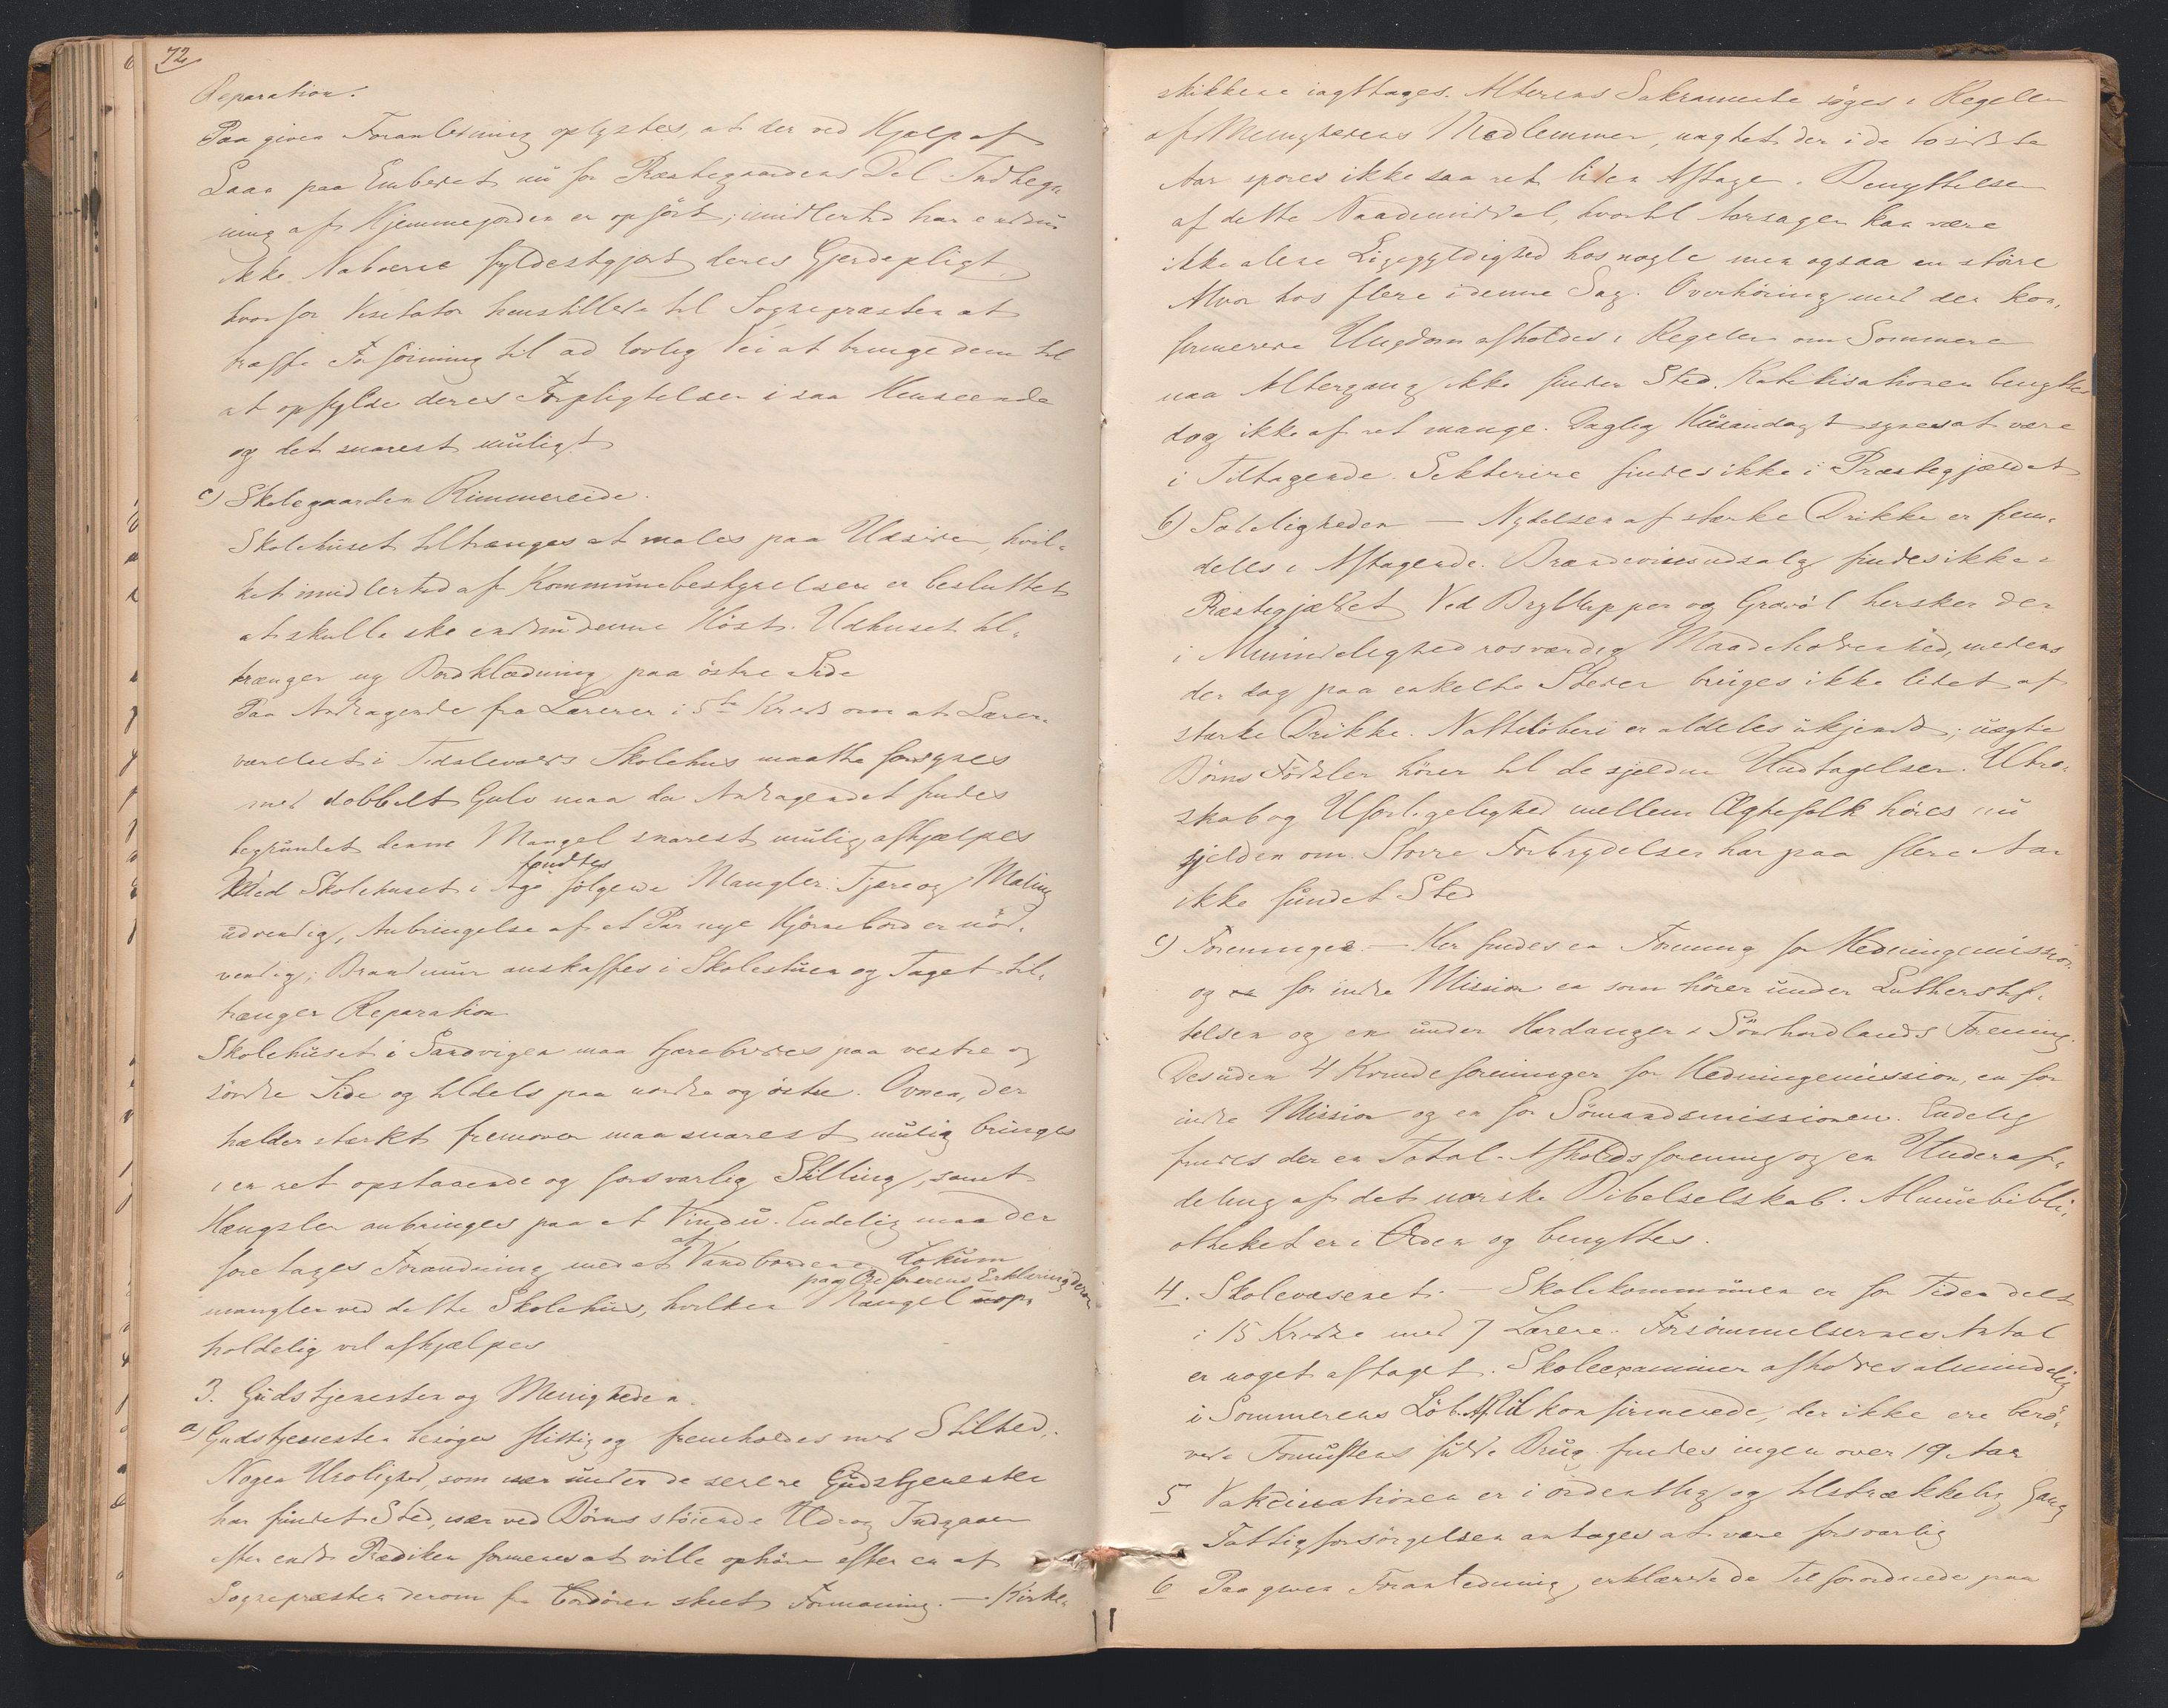 72
Reparation.
Paa given Foranledning oplystes, at der ved Hjælp af
Laan paa Embedet nu for Præstegaardens Del Indheg-
ning af Hjemmejorden er opført; imidlertid har endnu
ikke Naboerne fyldestgjort deres Gjerdepligt
hvorfor Visitator henstillede til Sognepræsten at
træffe Forføining til ad lovlig Vei at bringe dem til
at opfylde deres Forpligtelser i saa Henseende
og det snarest muligt
c) Skolegaarden Rimmereide.
Skolehuset tiltrænges at males paa Udsiden, hvil-
ket imidlertid af Kommunebestyrelsen er besluttet
at skulle ske endnu denne Høst. Udhuset til-
trænger ny Bordklædning paa østre Side
Paa Andragende fra Læreren i 5te Kreds om at Lærer-
værelset i Skolehus maatte forsynes
med dobbelt Gulv maa da Andragendet findes
begrundet denne Mangel snarest mulig afhjælpes
Ved Skolehuset i Age fandtes følgende Mangler: Tjære og Maling
udvendig, Anbringelse af et Par nye Hjørnebord er nød-
vendig; Brandmur anskaffes i Skolestuen og Taget til-
trænger Reparation
Skolehuset i Sandvigen maa tjærebredes paa vestre og
søndre Side og tildels paa nordre og østre. Ovnen, der
hælder stærkt fremover maa snarest mulig bringes
i en ret opstaaende og forsvarlig Stilling, samt
Hængsler anbringes paa et Vindu. Endelig maa der
foretages Forandring med et af Vandbordene. Lokum
mangler ved dette Skolehus, hvilken Mangel paa Ordførerens Erklæring derom uop-
holdelig vil afhjælpes
3. Gudstjenesten og Menigheden.
a) Gudstjenesten besøges flittig og fremholdes med Stilhed.
Nogen Urolighed, som især under de senere Gudstjenester
har fundet Sted, især ved Børns støiende Ud og Indgaaen
efter endt Prædiken formenes at ville ophøre efter en af
Sognepræsten derom fra Cordøren skeet Formaning. — Kirke-
skikkene iagttages. Alterens Sakramente søges i Regelen
af Menighedens Medlemmer, uagtet der i de to sidste
Aar spores ikke saa ret liden Aftage i Benyttelsen
af dette Naademiddel, hvortil Aarsagen kan være
ikke alene Ligegyldighed hos nogle men ogsaa en større
Alvor hos flere i denne Sag. Overhøring med den kon-
firmerede Ungdom afholdes i Regelen om Sommeren
naar Altergang ikke finder Sted. Katekisationen benyttes
dog ikke af ret mange. Daglig Husandagt synes at være
i Tiltagende. Sekterere findes ikke i Præstegjældet
b) Sædeligheden — Nydelsen af stærke Drikke er frem-
deles i Aftagende. Brændevinsudsalg findes ikke i
Præstegjældet Ved Bryllupper og Gravøl hersker der
i Almindelighed rosværdig Maadeholdenhed, medens
der dog paa enkelte Steder bruges ikke lidet af
stærke Drikke. Natteløberi er aldeles ukjendt; uægte
Børns Fødsler hører til de sjeldne Undtagelser. Utro-
skab og Uforligelighed mellem Ægtefolk høres nu
sjelden om. Større Forbrydelser har paa flere Aar
ikke fundet Sted
c) Foreninger. — Her findes en Forening for Hedningemission
og for indre Mission en som hører under Lutherstif-
telsen og en under Hardanger & Søndhordlands Forening.
Desuden 4 Kvindeforeninger for Hedningemission, en for
indre Mission og en for Sømandsmissionen. Endelig
findes der en Total-Afholdsforening og en Underaf-
deling af det norske Bibelselskab. Almuebibli-
otheket er i Orden og benyttes.
4. Skolevæsenet. — Skolekommunen er for Tiden delt
i 15 Kredse med 7 Lærere. Forsømmelsernes Antal
er noget aftaget. Skoleexaminer afholdes almindelig
i Sommerens Løb. Af Ukonfirmerede, der ikke ere berø-
vede Fornuftens fulde Brug findes ingen over 19 Aar
5 Vakcinationen er i ordentlig og tilstrækkelig Gang
Fattigforsørgelsen antages at være forsvarlig
6 Paa given Foranledning, erklærede de Tilforordnede paa